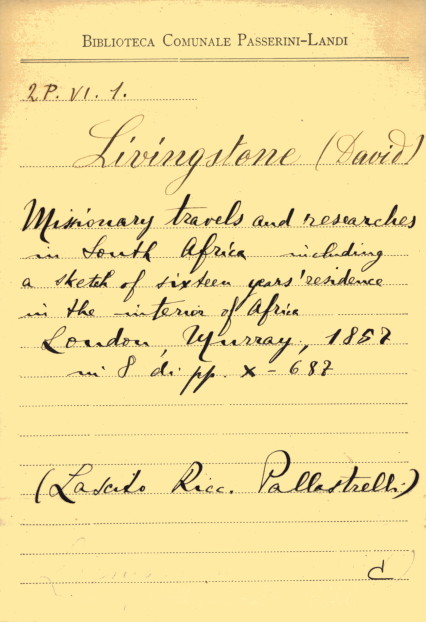 BIBLIOTECA COMUNALE PASSERINI-LANDI
2P. VI. 1.
Livingstone (David)
Missionary travels and researches
in South Africa including
a sketch of sixteen years' residence
in the interior of Africa
London, Murray, 1857
in 8 di pp. X - 687
(Lascito Ricc. Pallastrelli)
d